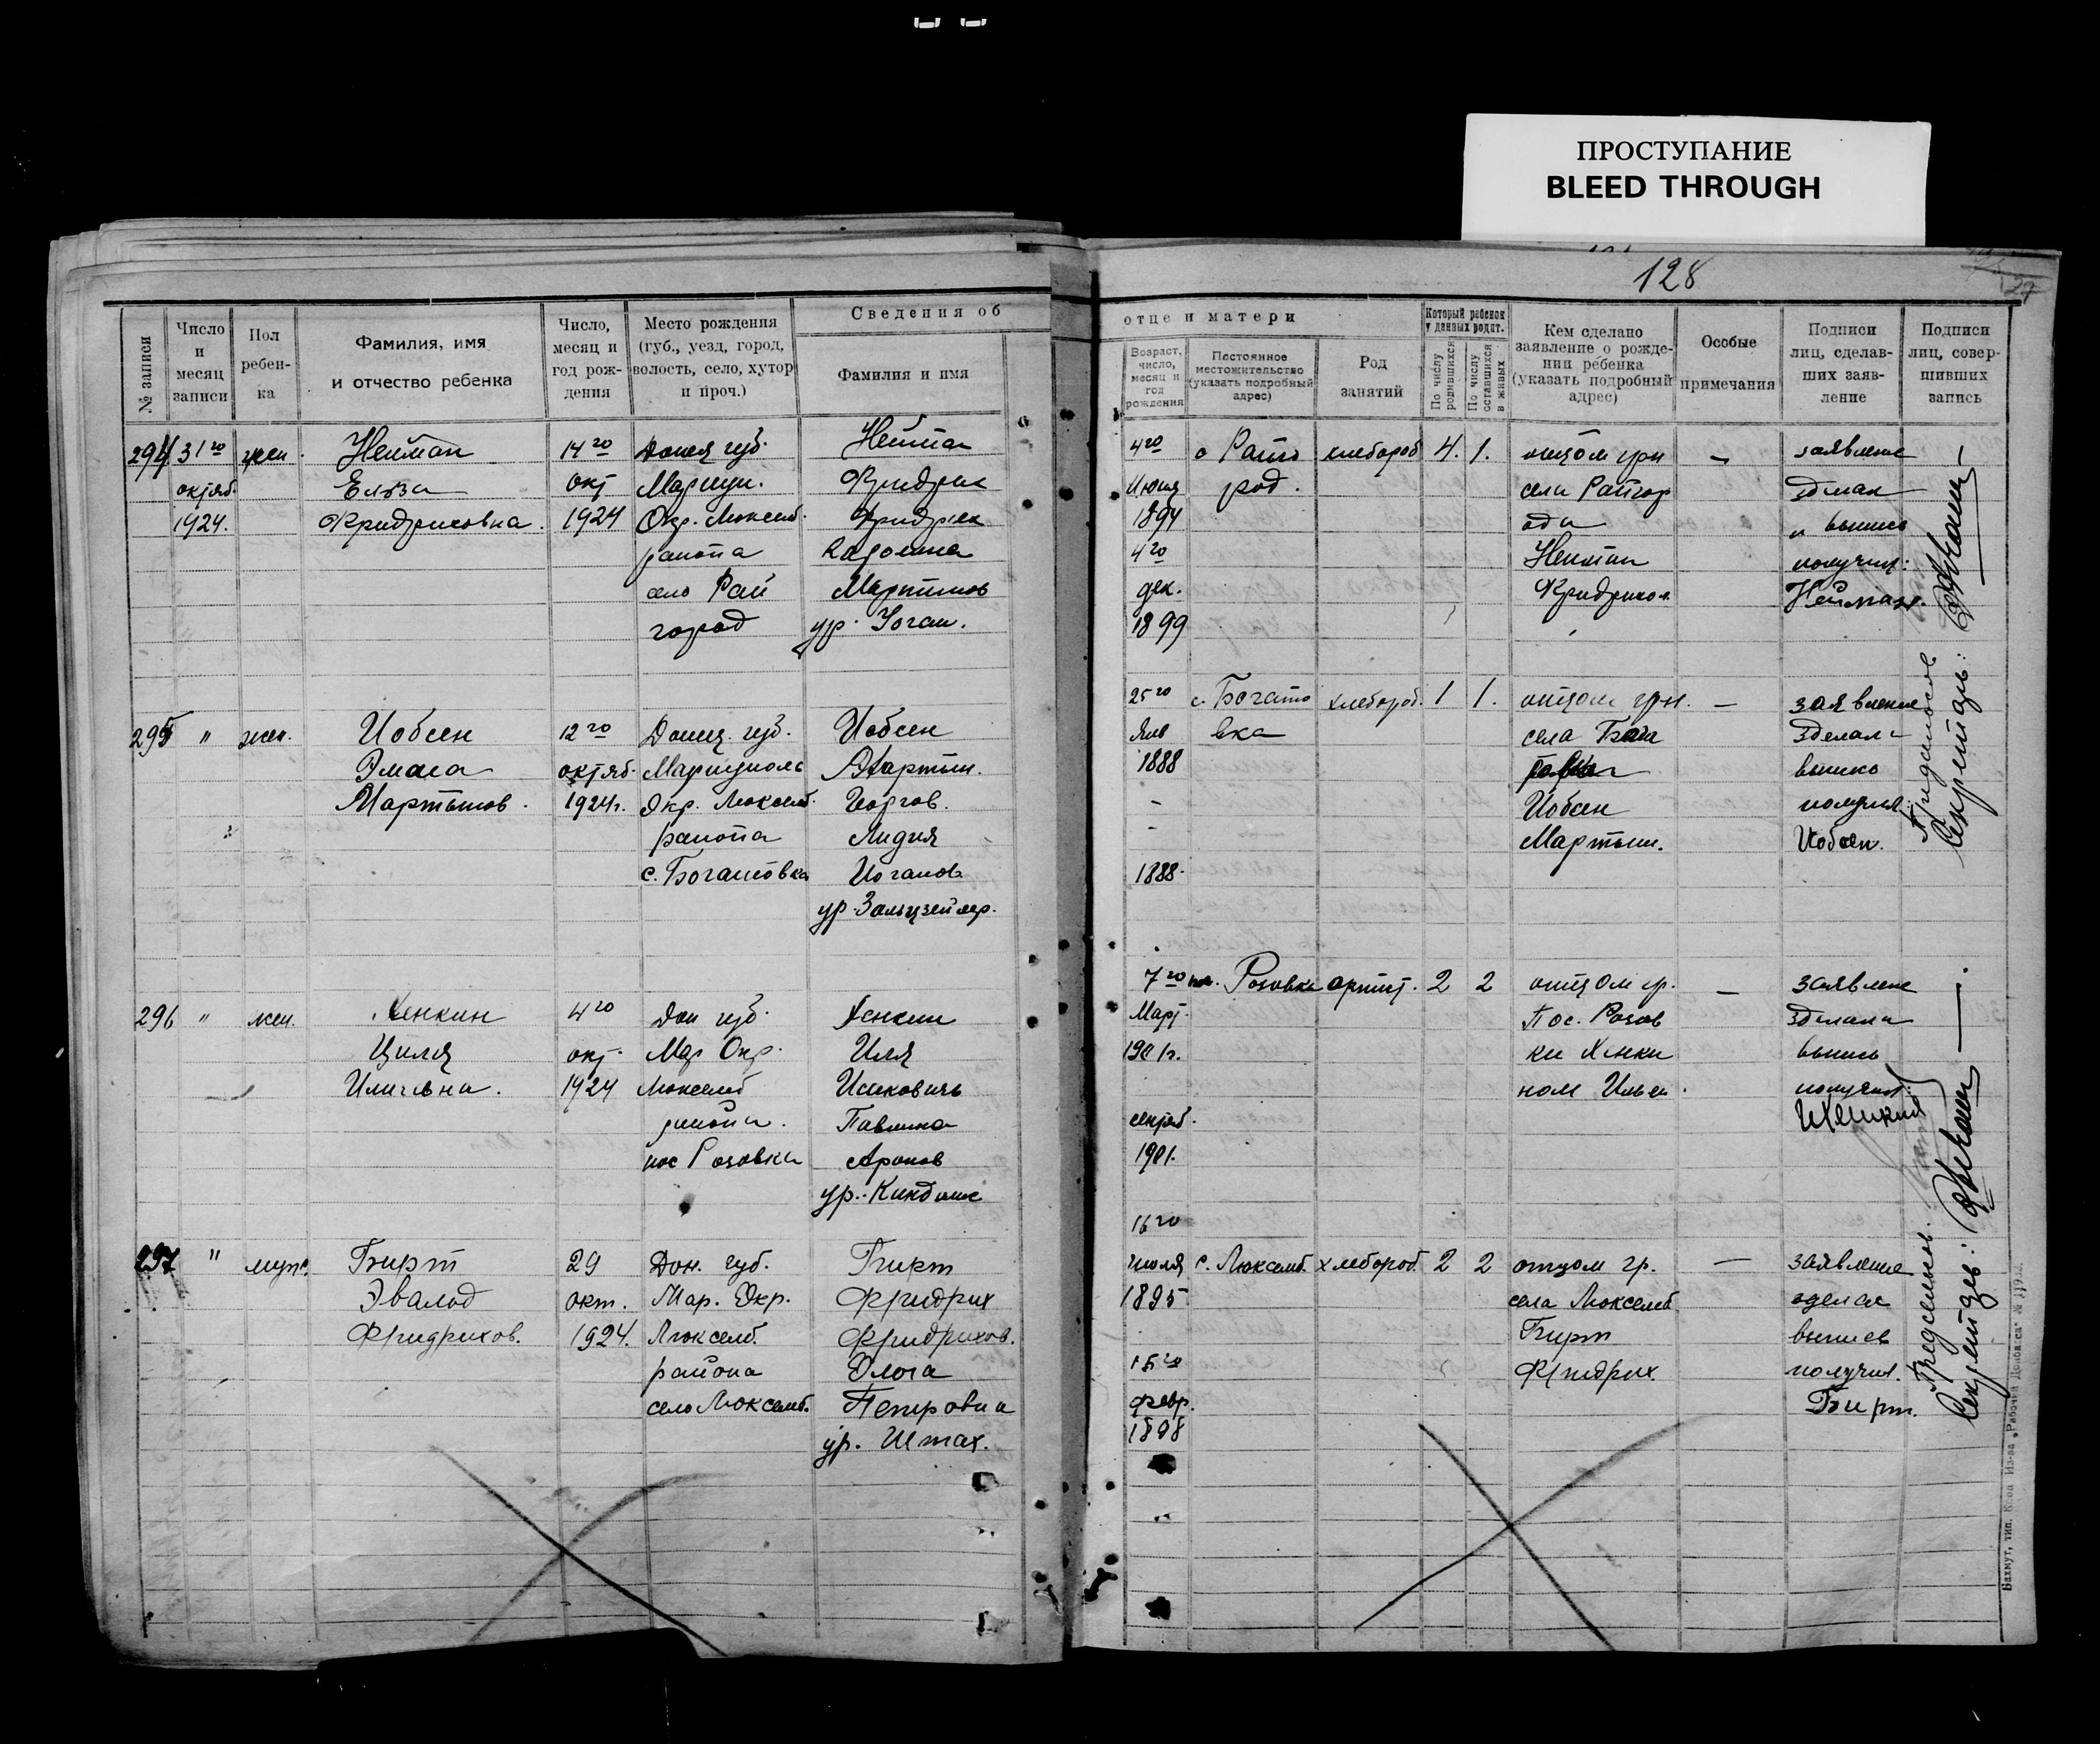 ПРОСТУПАНИЕ
BLEED THROUGH
128
27
Сведения об отце и матери
№ записи
Число и месяц записи
Пол ребен-ка
Фамилия, имя и отчество ребенка
Число, месяц и год рож-дения
Место рождения (губ., уезд, город, волость, село, хутор и проч.)
Фамилия и имя
Возраст, число, месяц и год рождения
Постоянное местожительство (указать подробный адрес)
Род занятий
Который ребенок у данных родит.
По числу родившихся
По числу оставшихся в живых
Кем сделано заявление о рожде-нии ребенка (указать подробный адрес)
Особые примечания
Подписи лиц, сделав-ших заяв-ление
Подписи лиц, совер-шивших запись
294 31го жен. Нейман 14го Донец губ. Нейман
октяб. Ельза окт Мариуп. Фридрих
1924. Фридриховна. 1924 Окр. Люксемб. Фридрих
района
село Рай Мартинов
город ур. Йоган.
4го с Райго хлебороб 4. 1. отцом грн — заявление
Июня род. села Райгор зделал
1894 ода и выпись
4го Нейман получил:
дек. Фридрихом Нейман.
1899
295 " жен. Иобсен 12го Донец. губ. Иобсен
октяб. Мариуполь Мартын.
Мартынов. 1924г. Окр. Люксемб. Георгов.
района Лидия
с. Богатовка Иоганов
ур. Зальцзейлер.
25го с. Богато хлебороб. 1 1. отцом грн. — заявление
Янв вка села Бога зделал
1888 выпись
- Иобсен получил:
- Мартын. Иобсен.
1888.
296 " жен. Хенкин 4го Дон губ. Хенкин
Циля окт. Мар Окр. Иля
Иличевна. 1924 Люксемб Исаковичь
района. Павлина
пос Розовка Аронов
ур.
7го пос. Розовка 2 2 отцом гр. — заявление
Март. Пос. Розов зделал
1901г. ки Хенки выпись
ном Ильей. получил:
сентяб. ИХенкин
1901.
297 " муж. Бирт 29 Дон. губ. Бирт
Эвальд окт. Мар. Окр. Фридрих
Фридрихов. 1924. Люксемб. Фридрихов.
района Ольга
село Люксемб. Петровна
ур. Штах.
16го
июля с. Люксемб. хлебороб. 2 2 отцом гр. — заявление
1895 села Люксемб сделал
Бирт выпись
15го Фридрих. получил.
февр. Бирт.
1898
Секретарь:
Секретарь:
Бахмут, тип. Кн-ва Из-ва „Рабочий Донбасса“